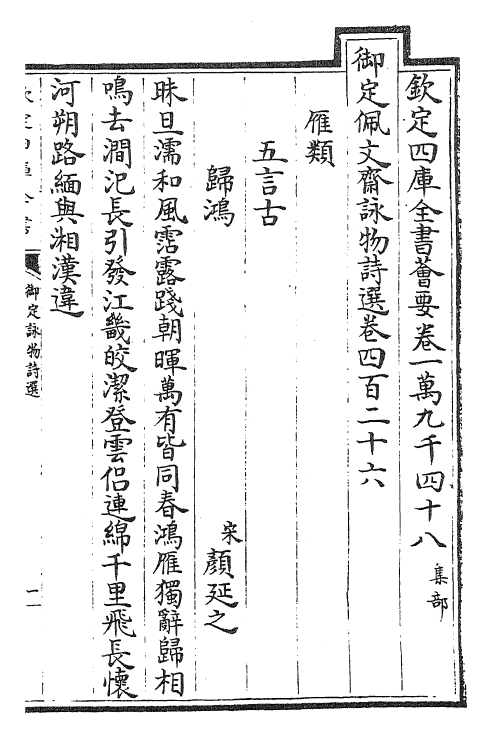 欽定四庫全書薈要卷一萬九千四十八 集部
御定佩文齋詠物詩選卷四百二十六
雁類
五言古
歸鴻 宋顏延之
昧旦濡和風霑露踐朝暉萬有皆同春鴻雁獨辭歸相
鳴去澗汜長引發江畿皎潔登雲侶連綿千里飛長懷
河朔路緬與湘漢違
欽定四庫全書 御定詠物詩選